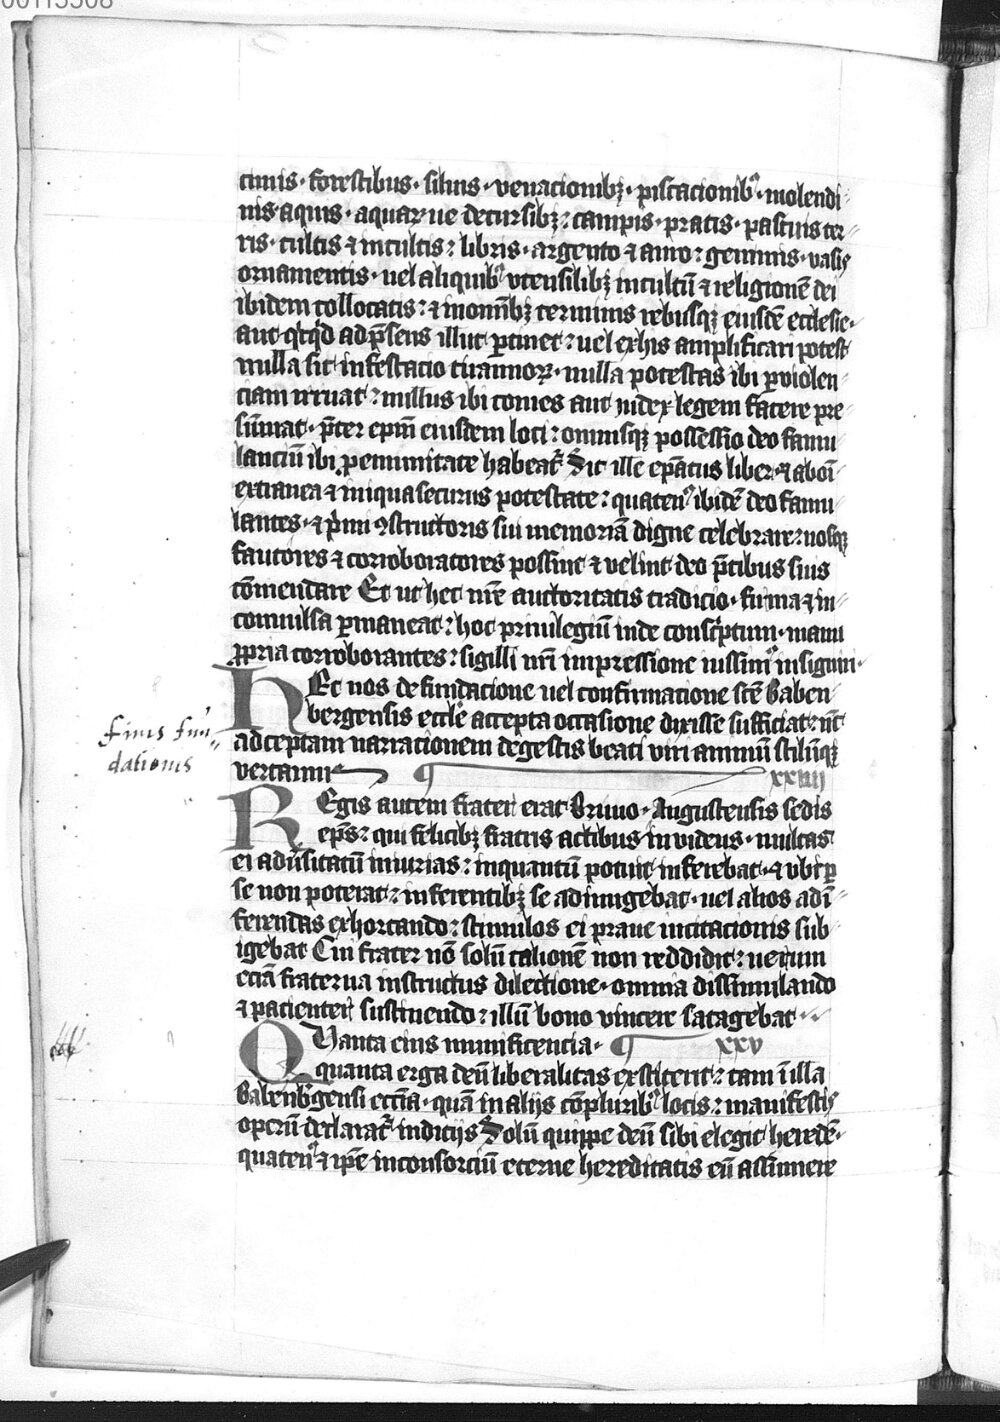 00113508
cinis · forestibus · siluis · venacionibꝫ · piscacionibꝰ · molendi
nis aquis · aquarꝫ ue decursibꝫ : campis · pratis · pascuis ter
ris · cultis ⁊ incultis : libris · argento ⁊ auro : gemmis · vasis
ornamentis · uel aliquibꝰ vtensilibꝫ in cultū ⁊ religionē dei
ibidem collocatis : ⁊ in omībꝫ terminis rebusqꝫ eiusdē ecclesie ·
aut ad p̄sens illuc ꝑtinet : uel ex his amplificari potest
nulla sit infestacio tirannorꝝ · nulla potestas ibi ꝑ violen
ciam irruat : nullus ibi comes aut iudex legem facere pre
sūmat · p̄ter ep̄m eiusdem loci : omnisqꝫ possessio deo famu
lanciū ibi habeat᷑ Sit ille ep̄atus liber ⁊ ab oī
extranea ⁊ iniqua securus potestate : quatenꝰ ibidē deo famu
lantes · ⁊ p̄mi ꝯstructoris sui memoriā digne celebrare : nosqꝫ
fautores ⁊ corroboratores possint ⁊ velint deo p̄cibus suis
cōmendare Et ut hec nr̄e auctoritatis tradicio · firma ⁊ in
conuulsa ꝑmaneat : hoc priuilegiū inde conscͥptum · manu
ꝓpria corroborantes : sigilli nr̄i impressione iussimꝰ insigniri ·
HEc nos de fundacione uel confirmatione scē Baben
bergensis eccl̄e accepta occasione dixisse sufficiat : nūc
ad ceptam narrationem de gestis beati viri animū stilūqꝫ
vertamus xxiiii
finis fun
dationis
REgis autem frater erat Bruno · Augustensis sedis
ep̄s : qui felicibꝫ fratris actibus inuidens · multas
ei adūsitatū iniurias : inquantū potuit inferebat · ⁊ vbi ꝑ
se non poterat : inferentibꝫ se adiungebat · uel alios ad ī
ferendas exhortando : stimulos ei praue incitacionis sub
igebat Cui frater nō solū talionē non reddidit : uerum
eciā fraterna instructus dilectione · omnia dissimulando
⁊ pacienter sustinendo : illū bono vincere satagebat ·
QVanta eius munificencia · xxv
quanta erga deū liberalitas exstiterit : tam ī illa
Babenb̄gensi eccīa · quā in alijs cōpluribꝰ locis : manifestis
operū declarat᷑ indicijs Solū quippe deū sibi elegit heredē ·
quatenꝰ ⁊ ip̄e in consorciū eterne hereditatis eū assumere